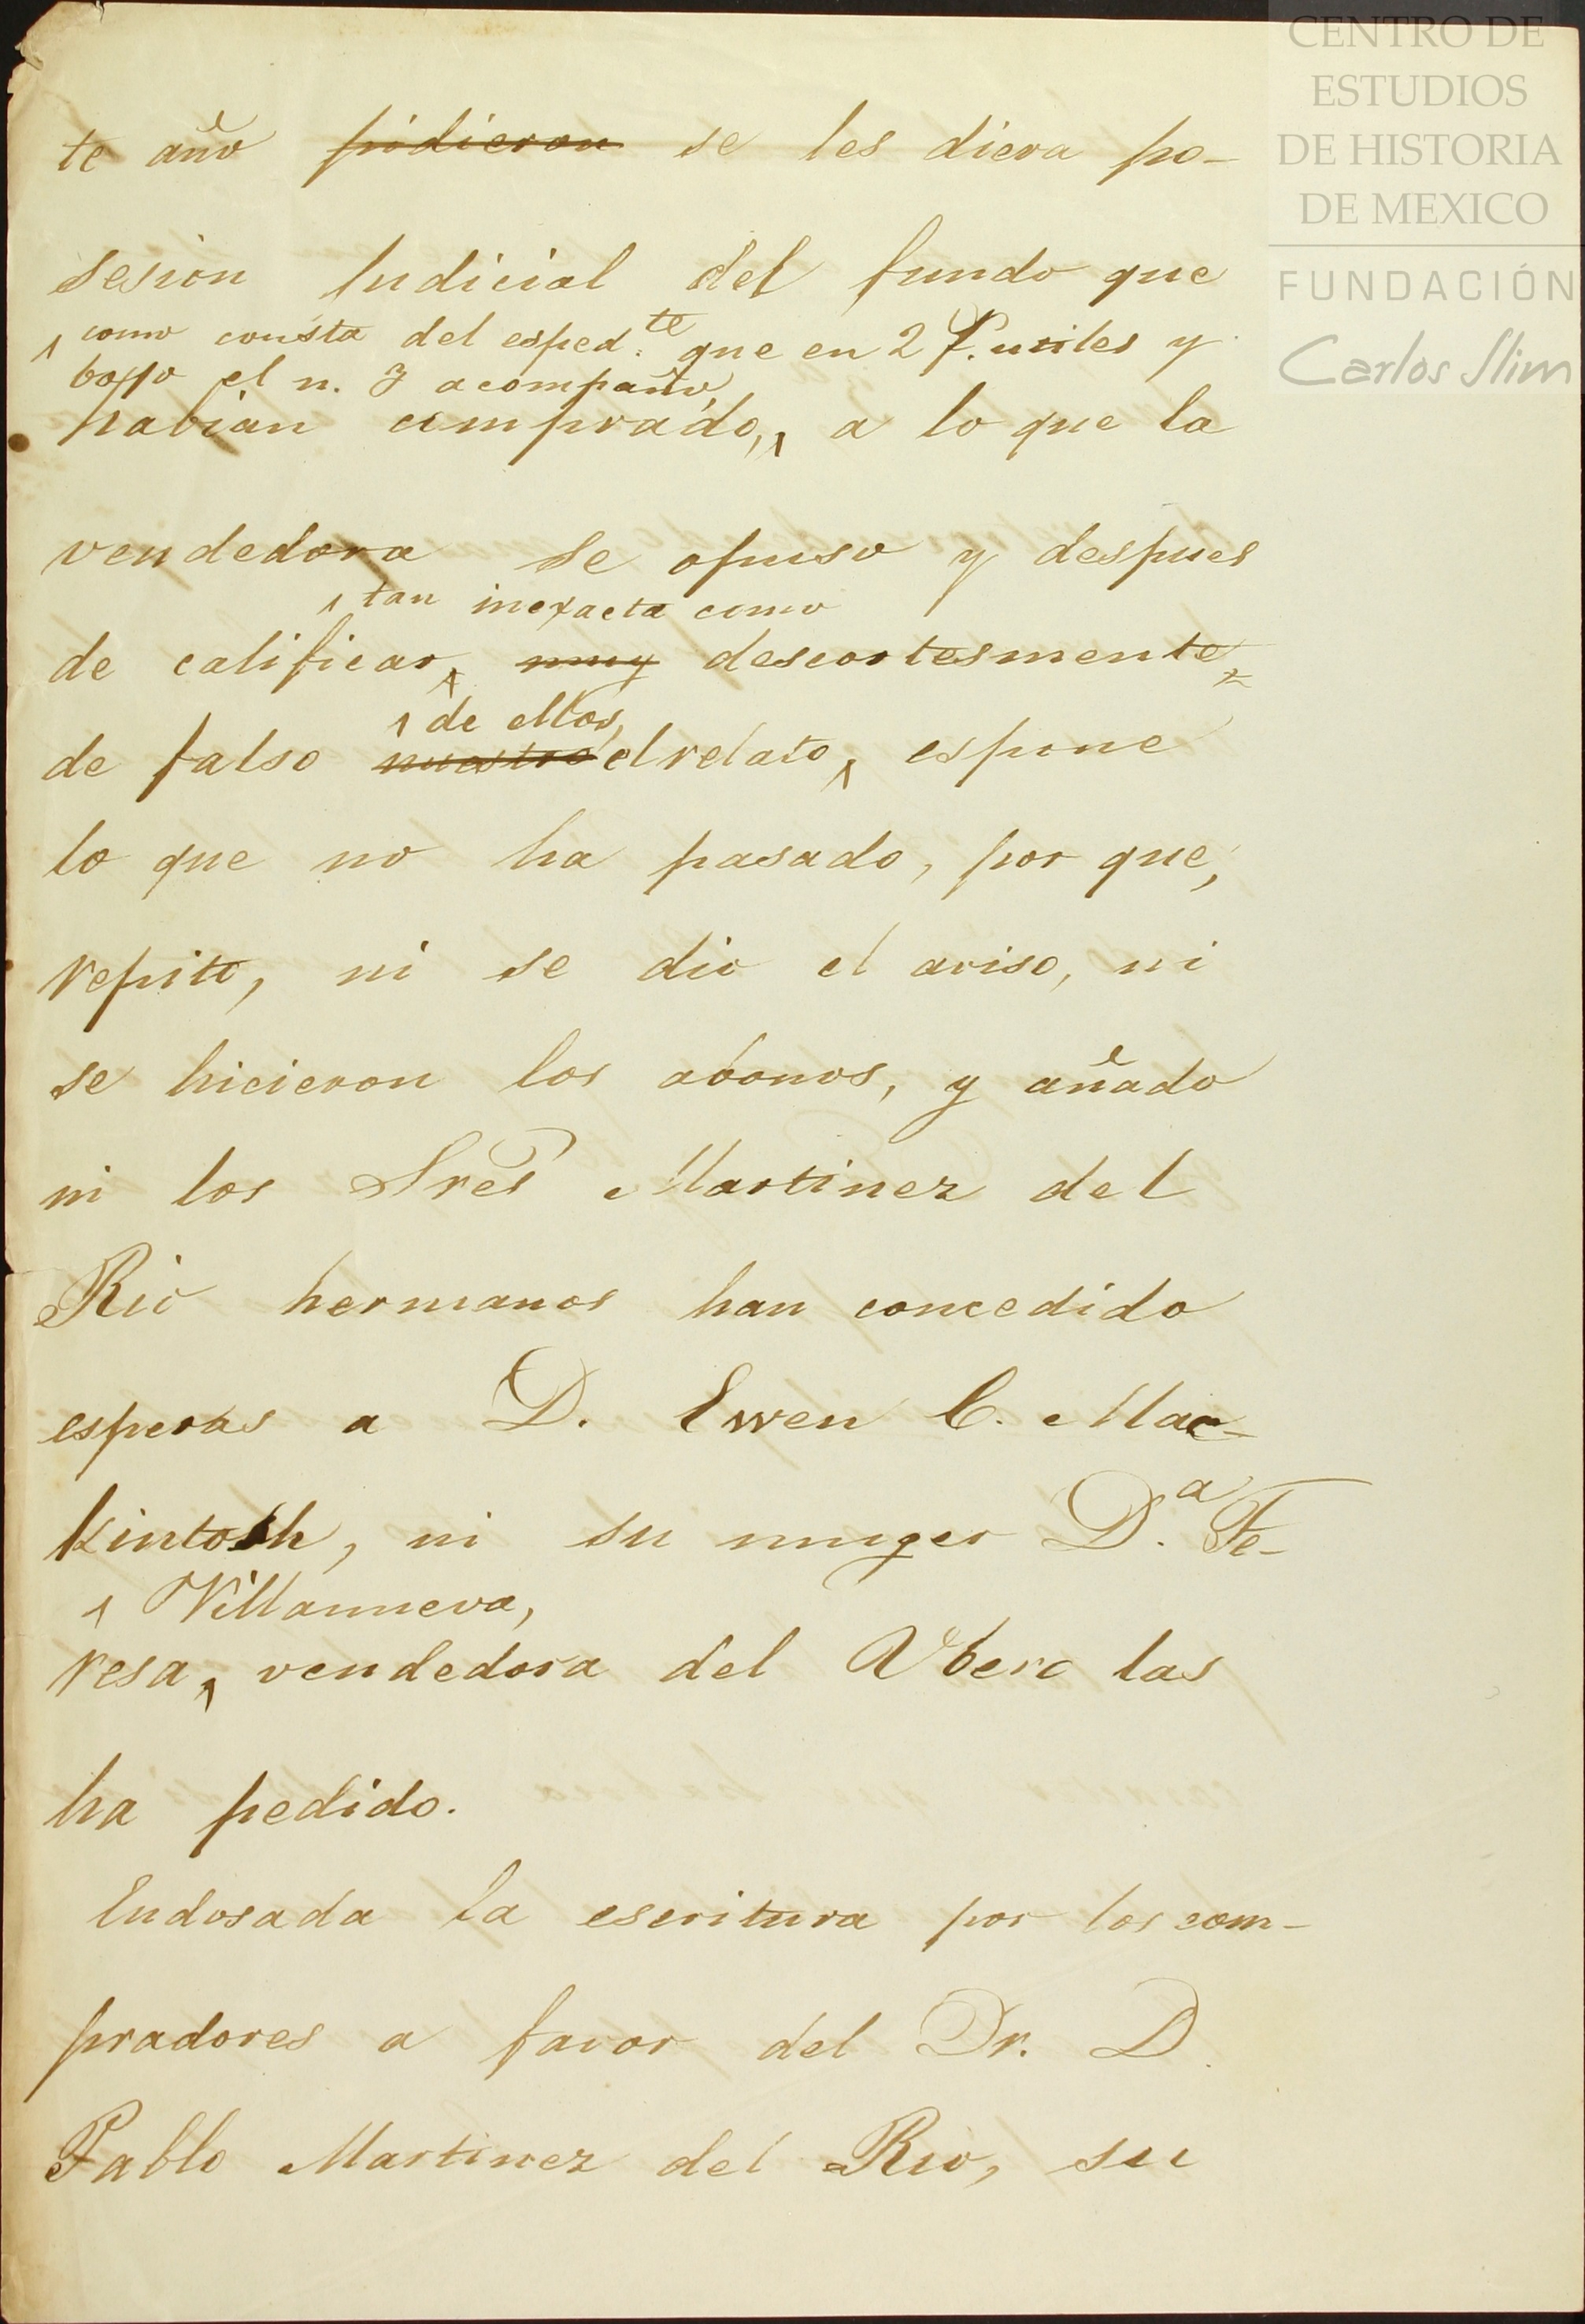 CENTRO DE
ESTUDIOS
DE HISTORIA
DE MEXICO
FUNDACIÓN
Carlos Slim
te año pidieron se les diera po-
sesion Judicial del fundo que
como consta del esped.te que en 2 f. utiles y
bajo el n. 3 acompaño,
habian comprado, a lo que la
vendedora se opuso y despues
tan inexacta como
de calificar, muy descortesmente
de ellos,
de falso nuestro el relato, espone
lo que no ha pasado, por que,
repito, ni se dio el aviso, ni
se hicieron los abonos, y añado
ni los Sres Martinez del
Rio hermanos han concedido
esperas a D. Ewen C. Mac-
kintosh, ni su muger D.a Te-
Villanueva,
resa, vendedora del Vbero las
ha pedido.
Endosada la escritura por los com-
pradores a favor del Dr. D.
Pablo Martinez del Rio, su